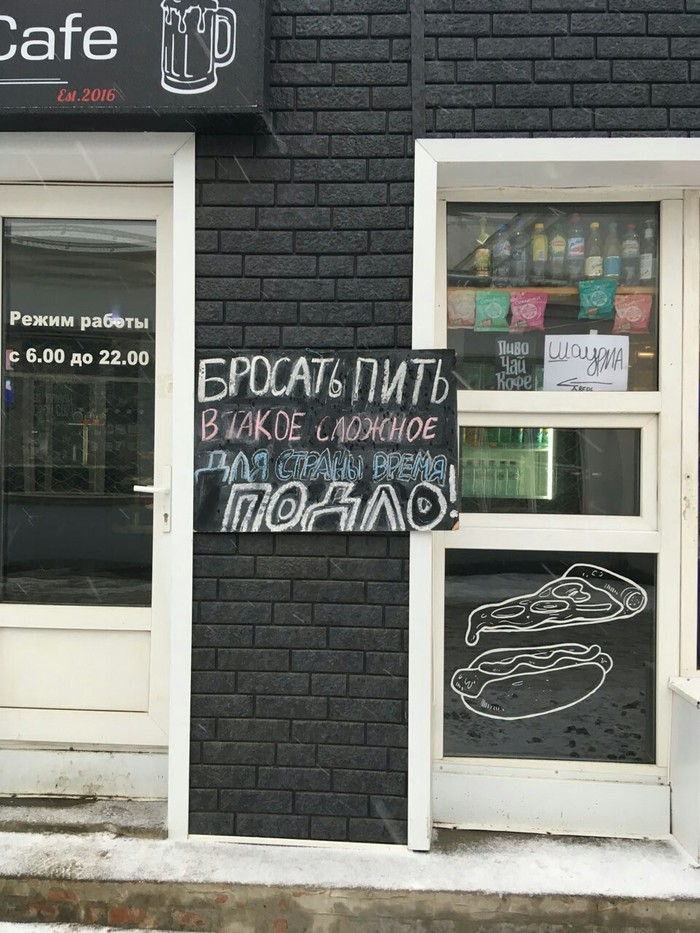 Cafe
Est.2016
Режим работы
с 6.00 до 22.00
БРОСАТЬ ПИТЬ
В ТАКОЕ СЛОЖНОЕ
ДЛЯ СТРАНЫ ВРЕМЯ
ПОДЛО!
Пиво
Чай
Кофе
шаурма